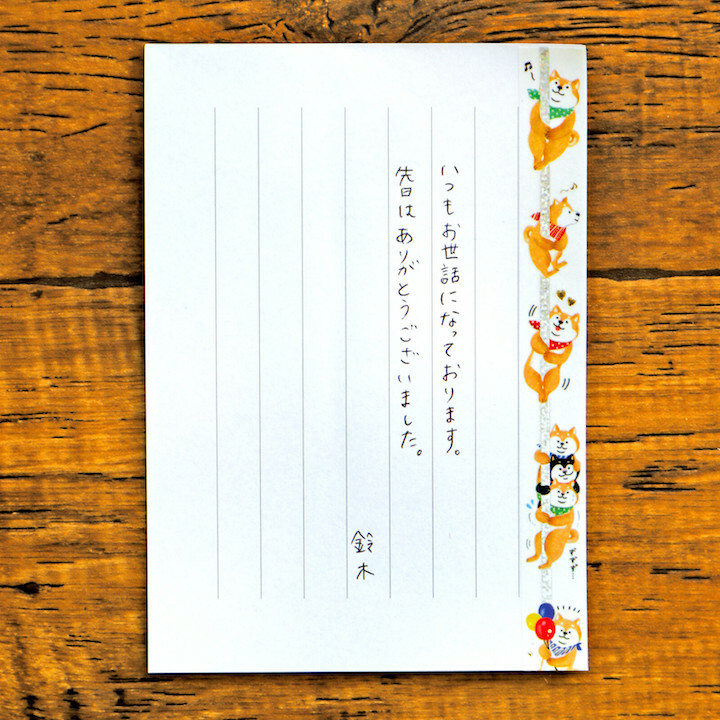 いつもお世話になっております。
先日はありがとうございました。
鈴木